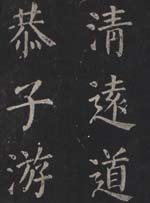 清遠道
恭子游